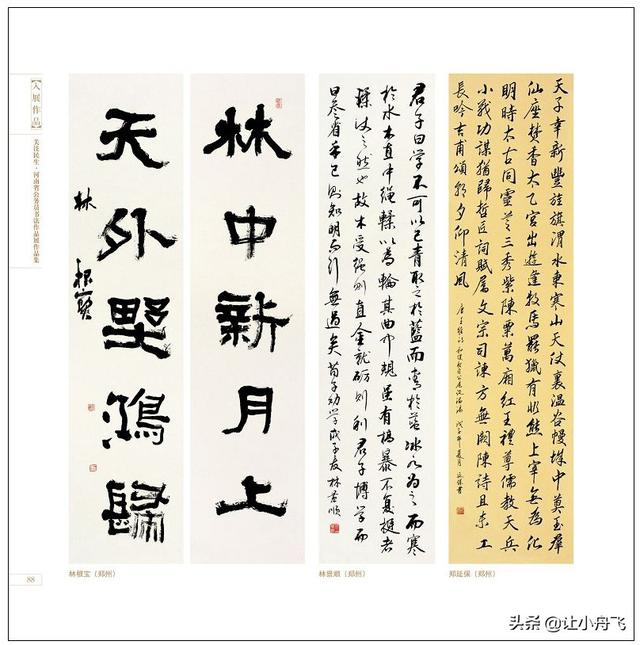 【入展作品】
关注民生·河南省公务员书法作品展作品集
林中新月上
天外墅鴻歸
林根寶
君子曰学不可以已青取之於藍而青於藍冰水为之而寒
於水木直中绳輮以为輪其曲中規虽有槁暴不复挺者
輮使之然也故木受绳则直金就砺则利君子博学而
日参省乎己则知明而行無過矣荀子劝学戊子夏林景順
天子幸新豐旌旗渭水東寒山天仗裏温谷幔城中奠玉群
仙座焚香太乙宮出遊逢牧馬罷獵有非熊上宰無為化
明時太古同靈芝三秀紫陳粟萬廂紅王禮尊儒教天兵
小戰功謀猶歸哲匠詞賦屬文宗司諫方無闕陳詩且未工
長吟吉甫頌朝夕仰清風
唐王維詩和僕射晋公扈從温湯 戊子年夏月 延保書
林根宝（郑州）
林景顺（郑州）
郑延保（郑州）
88
头条 @让小舟飞